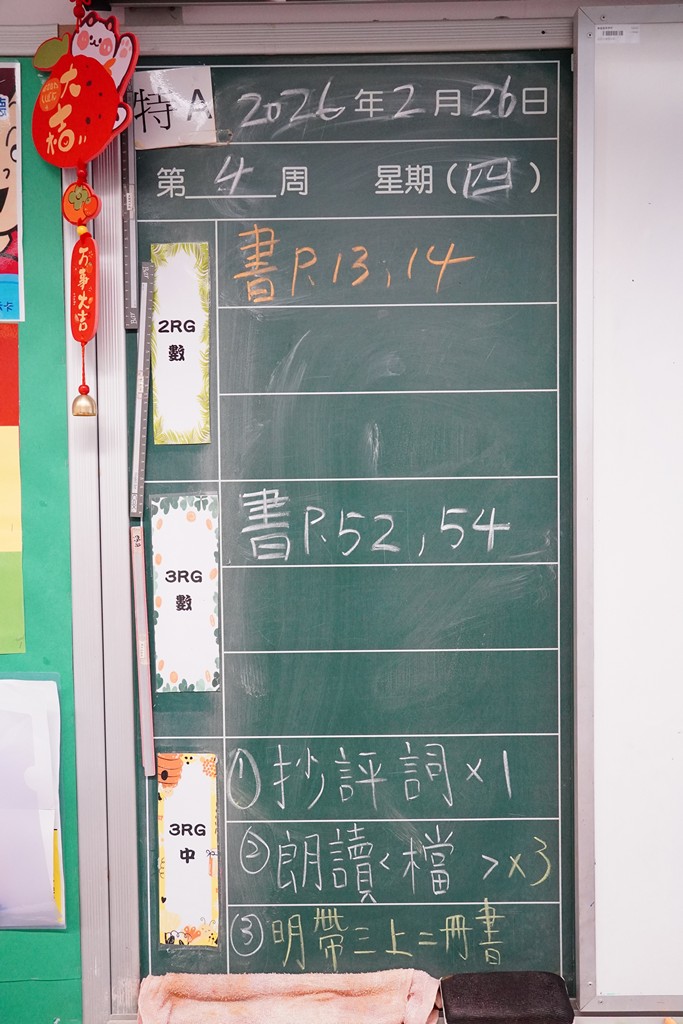 大吉
万事大吉
特A 2026年2月26日
第4周 星期(四)
2RG
數
書P.13,14
3RG
數
書P.52,54
3RG
中
①抄評詞×1
②朗讀<檔 >×3
③明帶三上二冊書